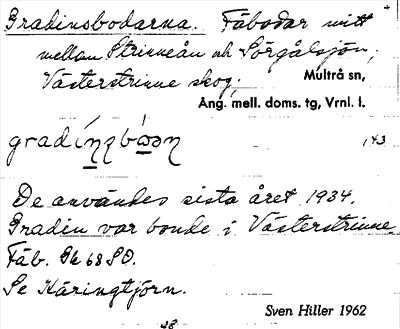 Gradinsbodarna. Fäbodar mitt
mellan Strinneån och Sörgålsjön,
Västerstrinne skog.
Multrå sn,
Ång. mell. doms. tg, Vrnl. l.
De användes sista året 1934.
Gradin var bonde i Västerstrinne.
Fäb. Gk 68 SO.
Se Käringtjörn.
Sven Hiller 1962